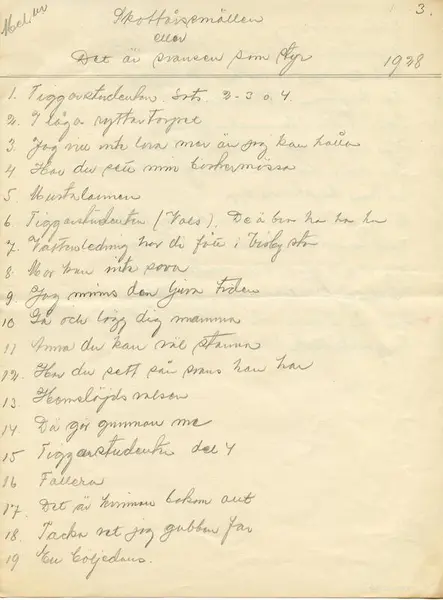 3.
Skottårssmällen
eller
Det är svansen som styr 1928
1. Tiggarstudenten Sats. 2-3 o 4.
2. I låga ryttartorpet
3. Jag nu inte lova mer än jag kan hålla
4 Har du sett min
5. Mustalainen
6 Tiggarstudenten (Vals). De ä bra ha ha ha
7. Vattenledning har di fått i Visby stan
8. Mor kan inte sova
9 Jag minns den ljuva tiden
10 Gå och lägg dig mamma
11 Anna du kan väl stanna
12. Har du sett
 svans han har
13 Hemslöjdsvalsen
14. Då går gumman me
15 Tiggarstudenten del 4
16 Fallera
17. Det är kvinnan bakom allt
18. Tacka vet jag gubben far
19 En